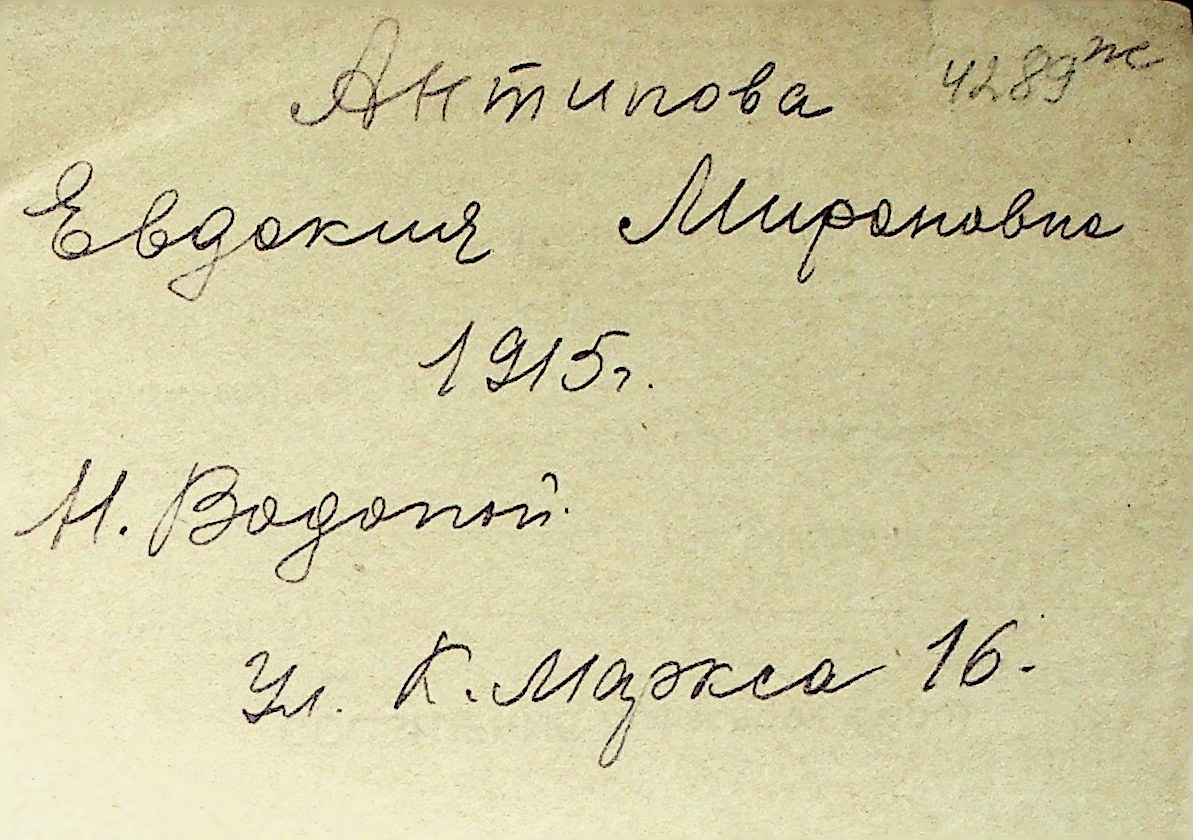 Антипова 4289ж
Евдокия Мироновна
1915г.
Н. Водопой
Ул. К. Маркса 16.